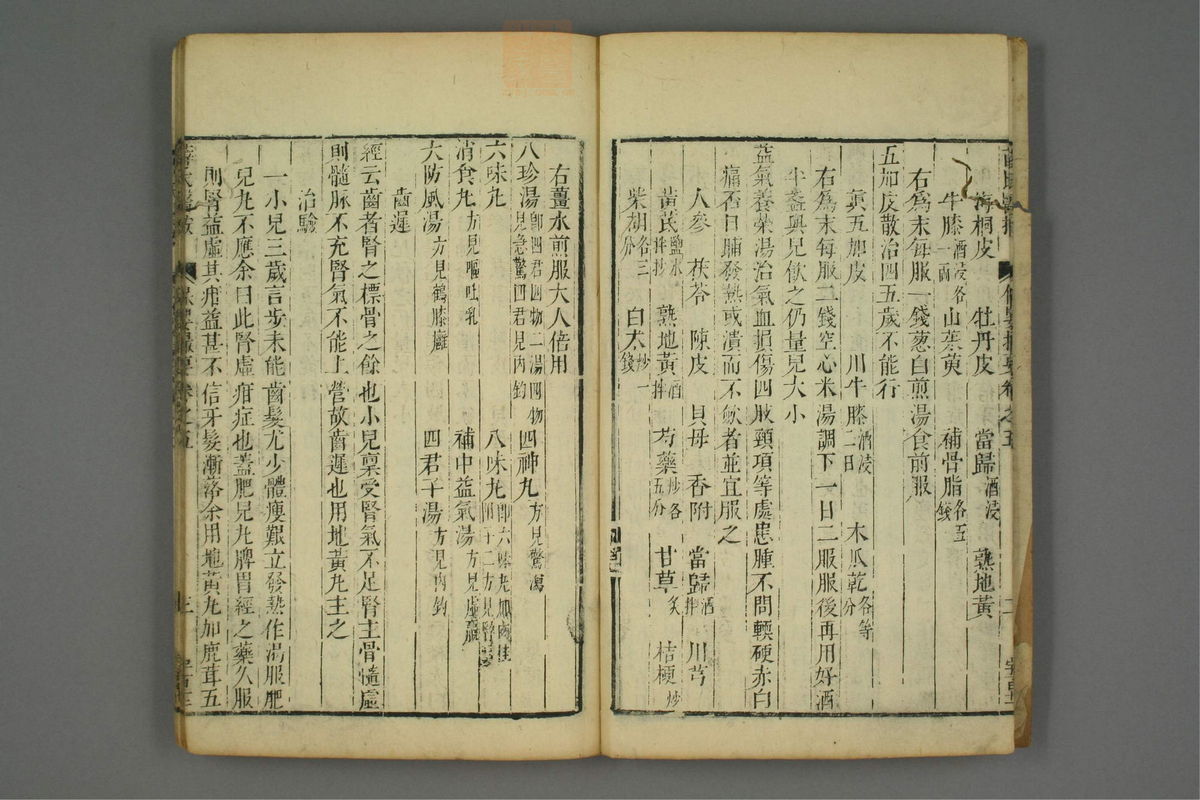 海桐皮 牡丹皮 當歸酒浸 熟地黃
牛膝酒浸各一兩 山茱萸 補骨脂各五錢
右為末每服一錢葱白煎湯食前服
五加皮散治四五歲不能行
真五加皮 川牛膝酒浸二日 木瓜乾各等分
右為末每服二錢空心米湯調下一日二服服後再用好酒
半盞與兒飲之仍量兒大小
益氣養榮湯治氣血損傷四肢頸項等處患腫不問輭硬赤白
痛否日晡發熱或潰而不斂者並宜服之
人參 茯苓 陳皮 貝母 香附 當歸酒拌 川芎
黃芪鹽水拌抄 熟地黃酒拌 芍藥抄各五分 甘草炙 桔梗炒
柴胡各三分 白朮炒一錢
右薑水煎服大人倍用
八珍湯即四君四物二湯四物見急驚四君見内鈎 四神丸方見驚瀉
六味丸 八味丸即六味丸加肉桂附子二方見腎
消食丸方見嘔吐乳 補中益氣湯方見虛羸
大防風湯方見鶴膝癰 四君子湯方見内鈎
齒遲
經云齒者腎之標骨之餘也小兒稟受腎氣不足腎主骨髓虛
則髓脉不充腎氣不能上營故齒遲也用地黃丸主之
治驗
一小兒三歲言步未能齒髮尤少體瘦艱立發熱作渴服肥
兒丸不應余曰此腎虛疳症也蓋肥兒丸脾胃經之藥久服
則腎益虛其疳益甚不信牙髮漸落余用地黃丸加鹿茸五